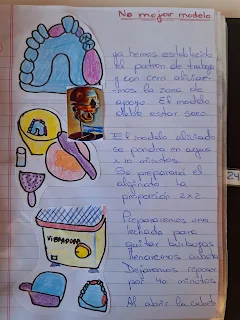 No mojar modelo
ya hemos establecido
el patron de trabajo
y con cera aliviare-
mos la zona de
apoyo. El modelo
debe estar seco.
El modelo aliviado
se pondra en agua
x 10 minutos.
Se preparará el
alginato la
proporción 2x2.
Prepararemos una
lechada para
quitar burbujas
llenaremos cubeta
Dejaremos reposar
por 40 minutos.
Al abrir la cubeta
VIBRADORA
24